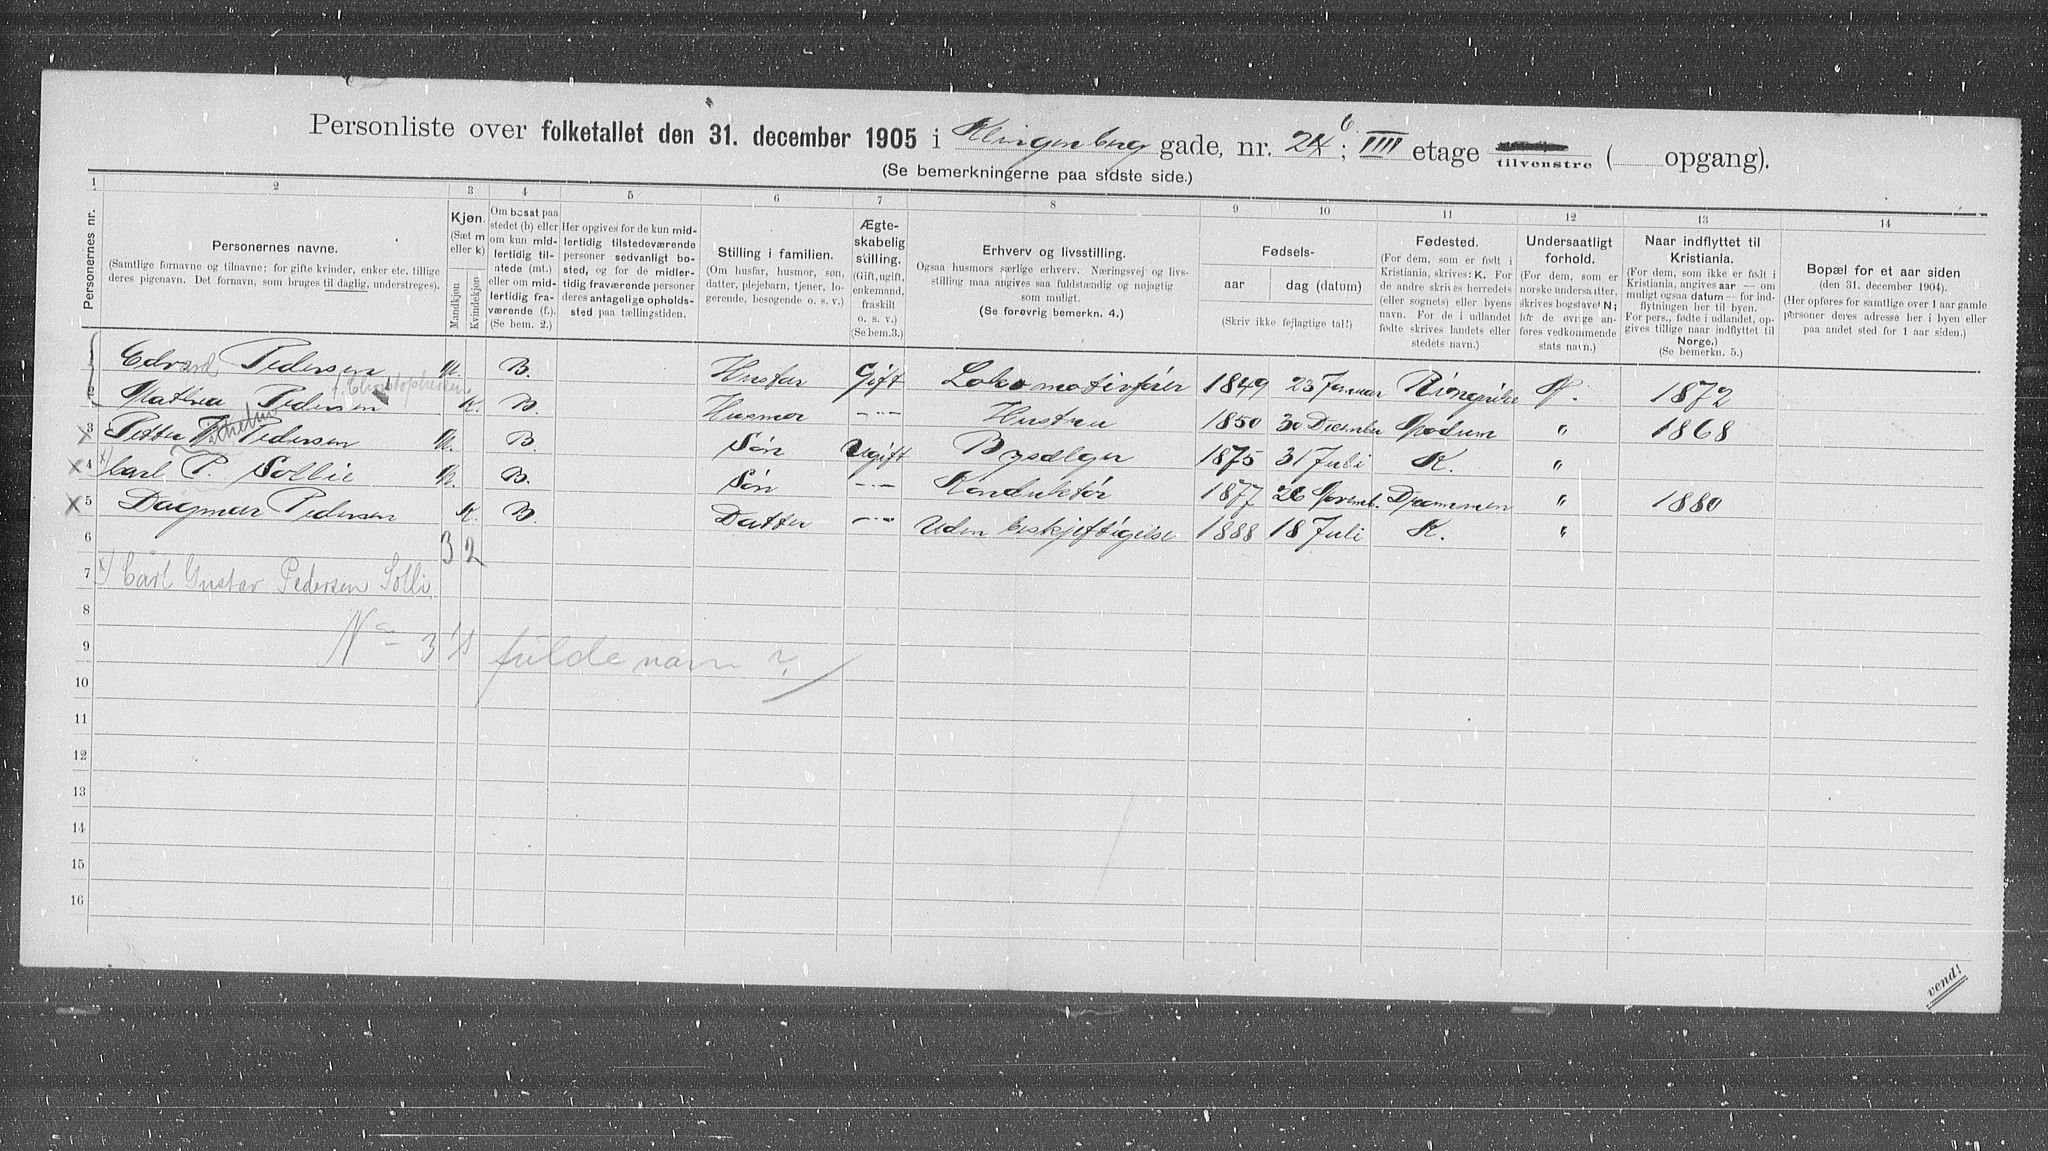 Personliste over folketallet den 31. december 1905 i Klingenberg gade, nr. 24 b; III etage tilvenstre ( opgang).
(Se bemerkningerne paa sidste side.)
1 2 3 4 5 6 7 8 9 10 11 12 13 14
Personernes nr.
Personernes navne.
(Samtlige fornavne og tilnavne; for gifte kvinder, enker etc. tillige
deres pigenavn. Det fornavn, som bruges til daglig, understreges).
Kjøn.
(Sæt m
eller k)
Mandkjøn
Kvindekjøn
Om bosat paa
stedet (b) eller
om kun mid-
lertidig til-
stede (mt.)
eller om mid-
lertidig fra-
værende (f.).
(Se bem. 2.)
Her opgives for de kun mid-
lertidig tilstedeværende
personer sedvanligt bo-
sted, og for de midler-
tidig fraværende personer
deres antagelige opholds-
sted paa tællingstiden.
Stilling i familien.
(Om husfar, husmor, søn,
datter, plejebarn, tjener, lo-
gerende, besøgende o. s. v.)
Ægte-
skabelig
stilling.
(Gift, ugift,
enkemand,
fraskilt
o. s. v.)
(Se bem.3.)
Erhverv og livsstilling.
Ogsaa husmors særlige erhverv. Næringsvej og livs-
stilling maa angives saa fuldstændig og nøjagtig
som muligt.
(Se forøvrig bemerkn. 4.)
Fødsels-
aar
dag (datum)
(Skriv ikke fejlagtige tal!)
Fødested.
(For dem, som er født i
Kristiania, skrives: K. For
de andre skrives herredets
(eller sognets) eller byens
navn. For de i udlandet
fødte skrives landets eller
stedets navn.)
Undersaatligt
forhold.
(For dem, som er
norske undersaatter,
skrives bogstavet N;
for de øvrige an-
føres vedkommende
stats navn.)
Naar indflyttet til
Kristiania.
(For dem, som ikke er født i
Kristiania, angives aar — om
muligt ogsaa datum — for ind-
flytningen her til byen.
For pers., fødte i udlandet, op-
gives tillige naar indflyttet til
Norge.)
(Se bemerkn. 5.)
Bopæl for et aar siden
(den 31. december 1904).
(Her opføres for samtlige over 1 aar gamle
personer deres adresse her i byen eller
paa andet sted for 1 aar siden.)
1 Edvard Pedersen M. B. Husfar Gift Lokomotivfører 1849 23 Januar Ringerike N. 1872
f. Christophersen
2 Mathea Pedersen K. B. Husmor -"- Hustru 1850 30 Decembr Modum " 1868
Vilhelm
x 3 Petter Pedersen M. B. Søn Ugift Bysælger 1875 31 Juli K. "
x 4 x) Carl P. Sollie M. B. Søn -"- Konduktør 1877 26 Novemb. Drammen " 1880
x 5 Dagmar Pedersen K. B. Datter -"- Uden beskjeftigelse 1888 18 Juli K. "
6 3 2
7 x) Carl Gustav Pedersen Solli
8
9 No 3's fulde navn?
10
11
12
13
14
15
16
vend!